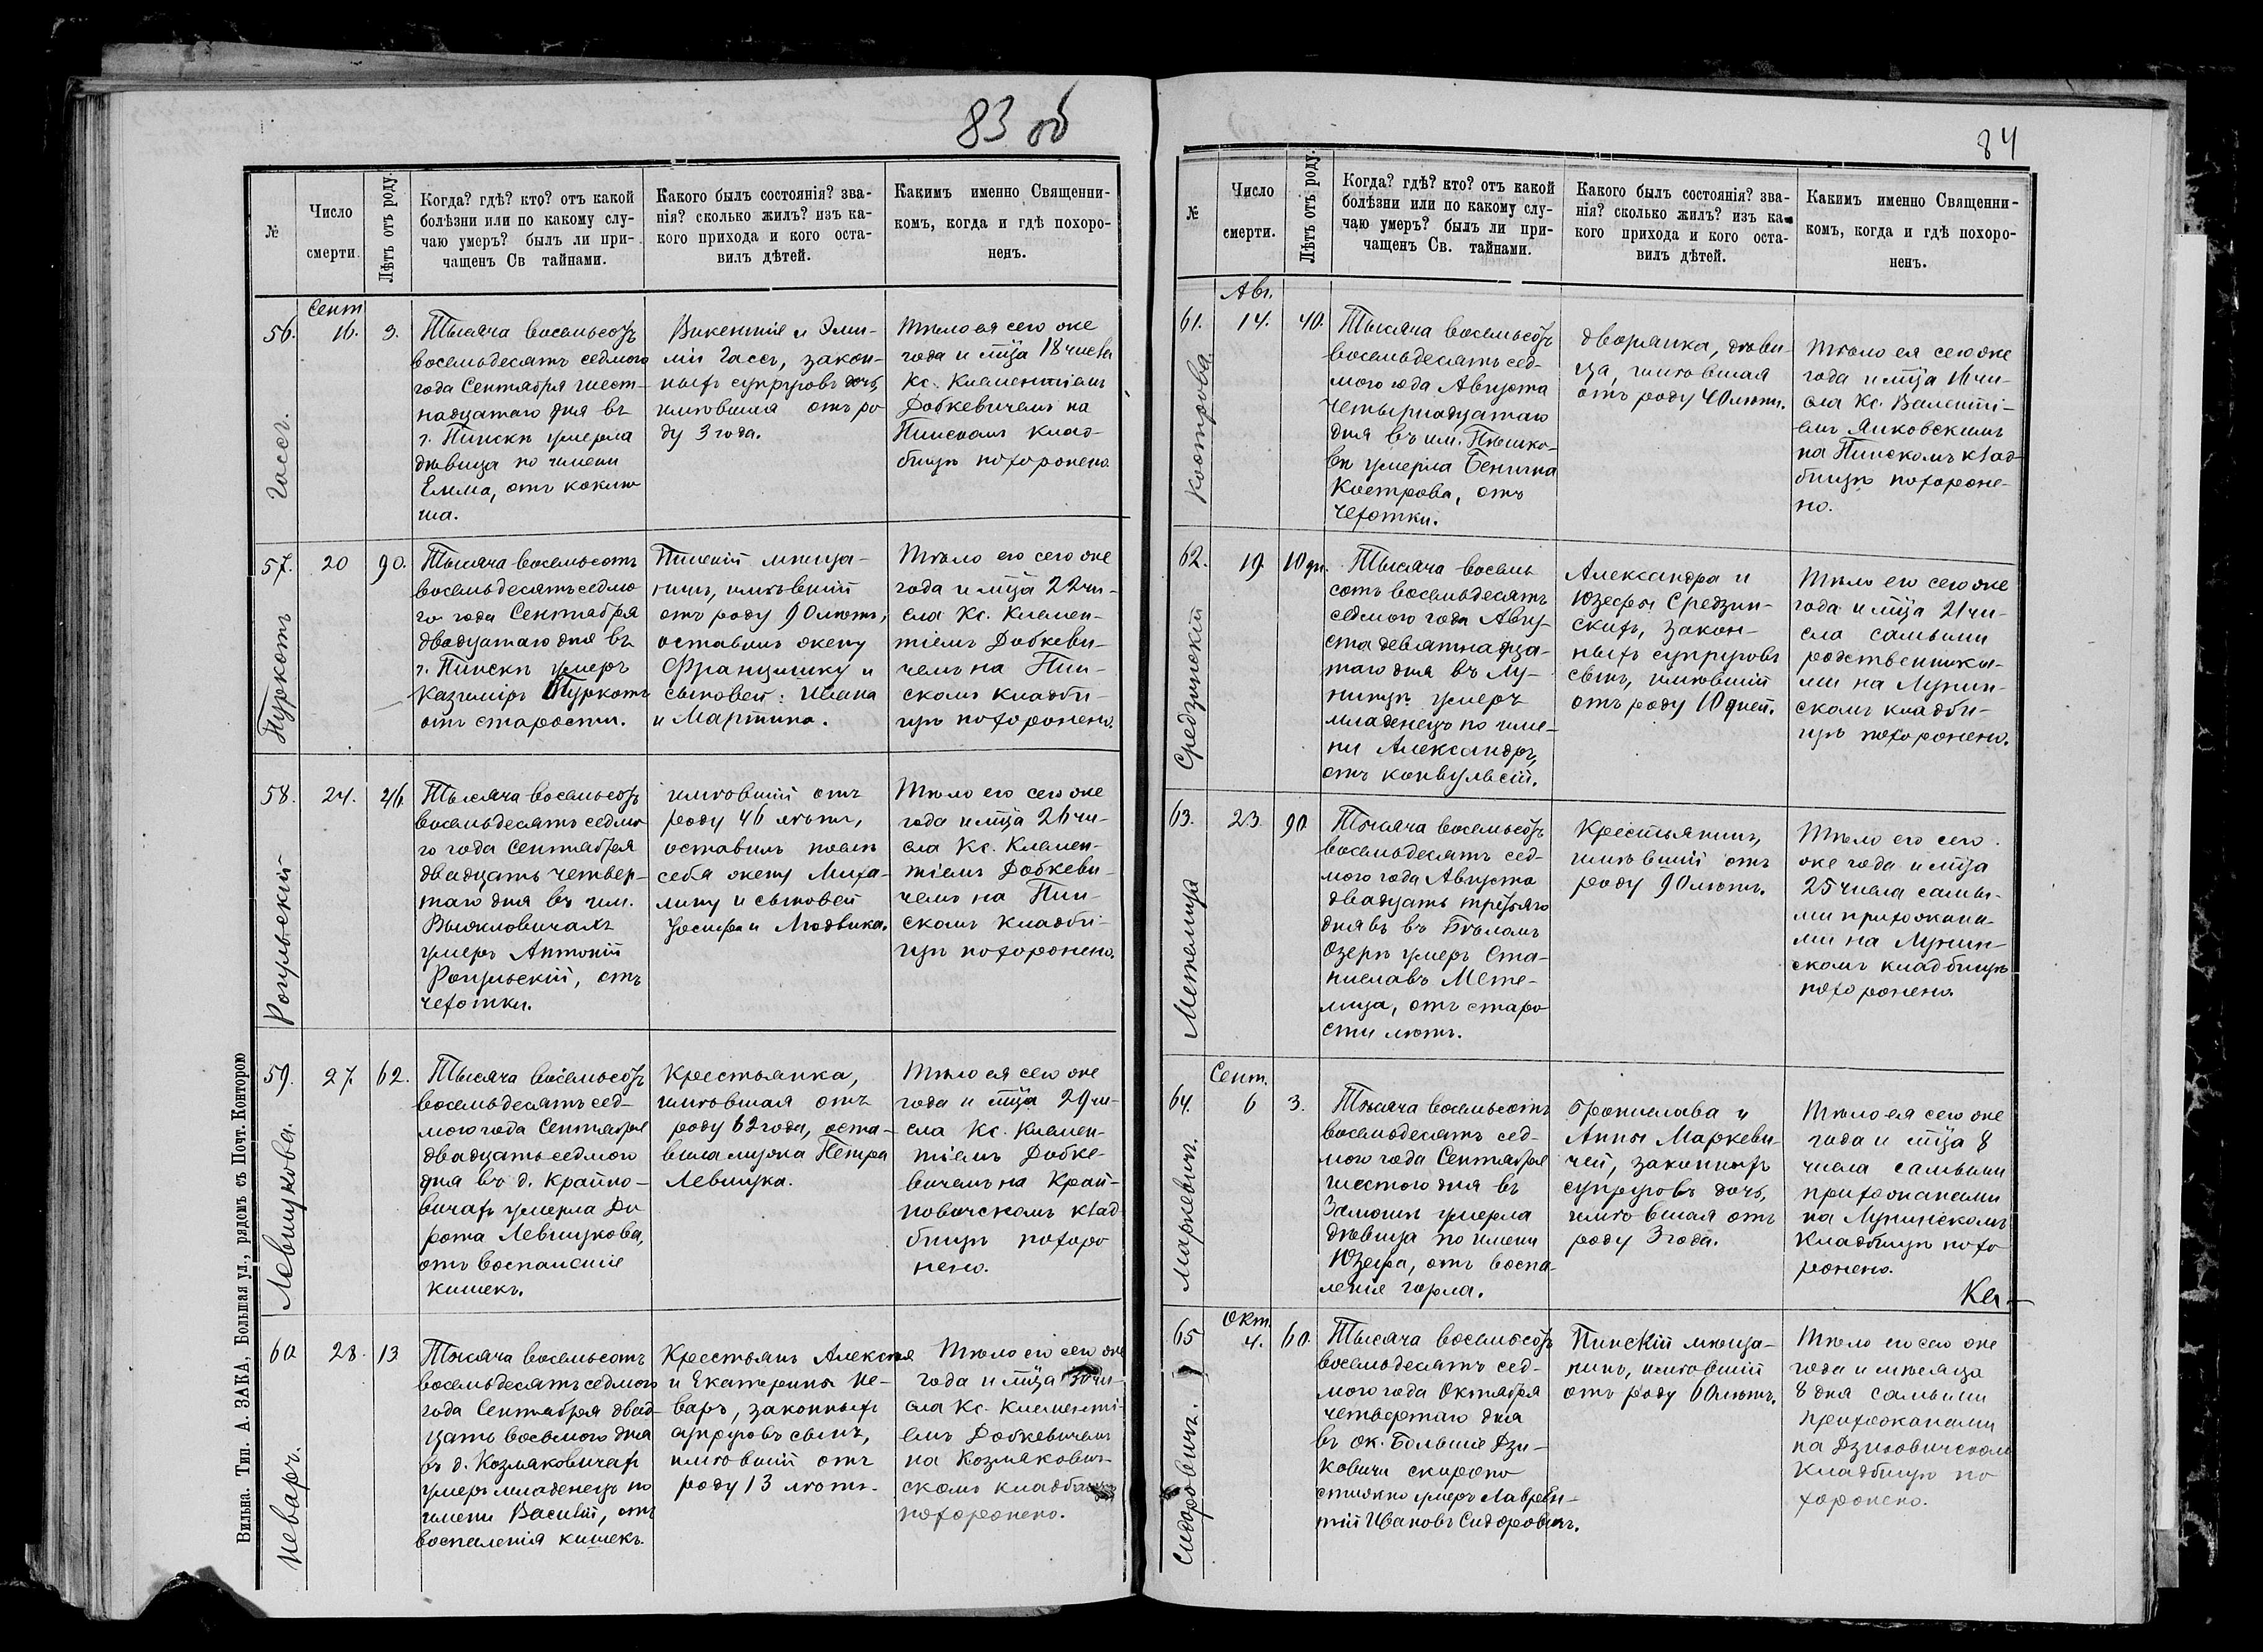 83 об
№
Число
смерти.
Лѣтъ отъ роду.
Когда? гдѣ? кто? отъ какой
болѣзни или по какому слу-
чаю умеръ? былъ ли при-
чащенъ Св тайнами.
Какого былъ состоянія? зва-
нія? сколько жилъ? изъ ка-
кого прихода и кого оста-
вилъ дѣтей.
Каким​ъ именно Священни-
комъ, когда и гдѣ похоро-
ненъ.
Сент
56.
Гассъ.
16.
3.
Тысяча восемьсотъ
восемьдесятъ седмого
года Сентября шест-
надцатаго дня въ
г. Пинскѣ умерла
дѣвица по имени
Емма, отъ коклю
ша.
Викентія и Эми-
ліи Гассъ, закон-
ныхъ супруговъ дочь,
имѣвшая отъ ро
ду 3 года.
Тѣло ея сего же
года и мца 18 числа
Кс. Клементіемъ
Добкевичемъ на
Пинскомъ клад-
бищѣ похоронено.
57.
Пуркотъ
20
90.
Тысяча восемьсотъ
восемьдесятъ седмо
го года Сентября
двадцатаго дня въ
г. Пинскѣ умеръ
Казиміръ Пуркотъ
отъ старости.
Пинскій мѣща-
нинъ, имѣвшій
отъ роду 90 лѣтъ,
оставилъ жену
Францишку и
сыновей: Ивана
и Мартина.
Тѣло его сего же
года и мца 22 чи-
сла Кс. Клемен-
тіемъ Добкеви-
чемъ на Пин-
скомъ кладби-
щѣ похоронено.
58.
Рогульскій
24.
46.
Тысяча восемьсотъ
восемьдесятъ седмо
го года Сентября
двадцать четвер-
таго дня въ им.
умеръ Антоній
Рогульскій, отъ
чахотки.
имѣвшій отъ
роду 46 лѣтъ,
оставилъ послѣ
себя жену Миха-
лину и сыновей
Іосифа и Людвика.
Тѣло его сего же
года и мца 26 чи-
сла Кс. Клемен-
тіемъ Добкеви-
чемъ на Пин-
скомъ кладби-
щѣ похоронено.
59.
Левицкова.
27.
62.
Тысяча восемьсотъ
восемьдесятъ сед-
мого года Сентября
двадцать седмого
дня въ д. Крайно-
вичахъ умерла До
рота Левицкова,
отъ воспаленія
кишекъ.
Крестьянка,
имѣвшая отъ
роду 62 года, оста-
вила мужа Петра
Левицка.
Тѣло ея сего же
года и мца 29 чи-
сла Кс. Клемен-
тіемъ Добке-
вичемъ на Край-
новичскомъ клад
бищѣ похоро
нено.
60
Неваръ.
28.
13
Тысяча восемьсотъ
восемьдесятъ седмого
года Сентября двад-
цать восьмого дня
въ д. Козляковичахъ
умеръ младенецъ по
имени Василій, отъ
воспаленія кишекъ.
Крестьянъ Алексѣя
и Екатерины Не-
варъ, законныхъ
супруговъ сынъ,
имѣвшій отъ
роду 13 лѣтъ.
Тѣло его сего же
года и мца 30 чи-
сла Кс. Клементі-
емъ Добкевичемъ
на Козлякович-
скомъ кладбищѣ
похоронено.
Вильна. Тип. А. ЗАКА, Большая ул., рядомъ съ Почт. Конторою
84
№
Число
смерти.
Лѣтъ отъ роду.
Когда? гдѣ? кто? отъ какой
болѣзни или по какому слу-
чаю умеръ? былъ ли при-
чащенъ Св. тайнами.
Какого былъ состоянія? зва-
нія? сколько жилъ? изъ ка-
кого прихода и кого оста-
вилъ дѣтей.
Какимъ именно Священни-
комъ, когда и гдѣ похоро-
ненъ.
Авг.
61.
Кострова.
14.
40.
Тысяча восемьсотъ
восемьдесятъ сед-
мого года Августа
четырнадцатаго
дня въ им. Плешко-
вѣ умерла Бенигна
Кострова, отъ
чахотки.
дворянка, дѣви-
ца, имѣвшая
отъ роду 40 лѣтъ.
Тѣло ея сего же
года и мца 16 чи-
сла Кс. Валенті-
емъ Янковскимъ
на Пинскомъ клад-
бищѣ похороне-
но.
62.
Средзинскій
19
10 дн.
Тысяча восемь
сотъ восемьдесятъ
седмого года Авгу-
ста девятнадца-
таго дня въ Лу-
нинцѣ умеръ
младенецъ по име-
ни Александръ,
отъ конвульсій.
Александра и
Юзефы Средзин-
скихъ, закон-
ныхъ супруговъ
сынъ, имѣвшій
отъ роду 10 дней.
Тѣло его сего же
года и мца 21 чи-
сла самыми
родственника-
ми на Лунин-
скомъ кладби-
щѣ похоронено.
63.
Метелица
23.
90
Тысяча восемьсотъ
восемьдесятъ сед-
мого года Августа
двадцать третьяго
дня въ въ Бѣломъ
Озерѣ умеръ Ста-
ниславъ Мете-
лица, отъ старо
сти лѣтъ.
Крестьянинъ,
имѣвшій отъ
роду 90 лѣтъ.
Тѣло его сего
же года и мца
25 числа самы-
ми прихожана-
ми на Лунин-
скомъ кладбищѣ
похоронено.
Сент.
64.
Маркевичъ.
6
3.
Тысяча восемьсотъ
восемьдесятъ сед-
мого года Сентября
шестого дня въ
умерла
дѣвица по имени
Юзефа, отъ воспа-
ленія горла.
Бронислава и
Анны Маркеви-
чей, законныхъ
супруговъ дочь,
имѣвшая отъ
роду 3 года.
Тѣло ея сего же
года и мца 8
числа самыми
прихожанами
на Лунинскомъ
кладбищѣ похо
ронено.
65.
Сидоровичъ.
Окт.
4.
60
Тысяча восемьсотъ
восемьдесятъ сед-
мого года Октября
четвертаго дня
въ ок. Большіе Дзи-
ковичи скоропо
стижно умеръ Лаврен-
тій Ивановъ Сидоровичъ.
Пинскій мѣща-
нинъ, имѣвшій
отъ роду 60 лѣтъ.
Тѣло его сего же
года и мѣсяца
8 дня самыми
прихожанами
на Дзиковичскомъ
кладбищѣ по
хоронено.